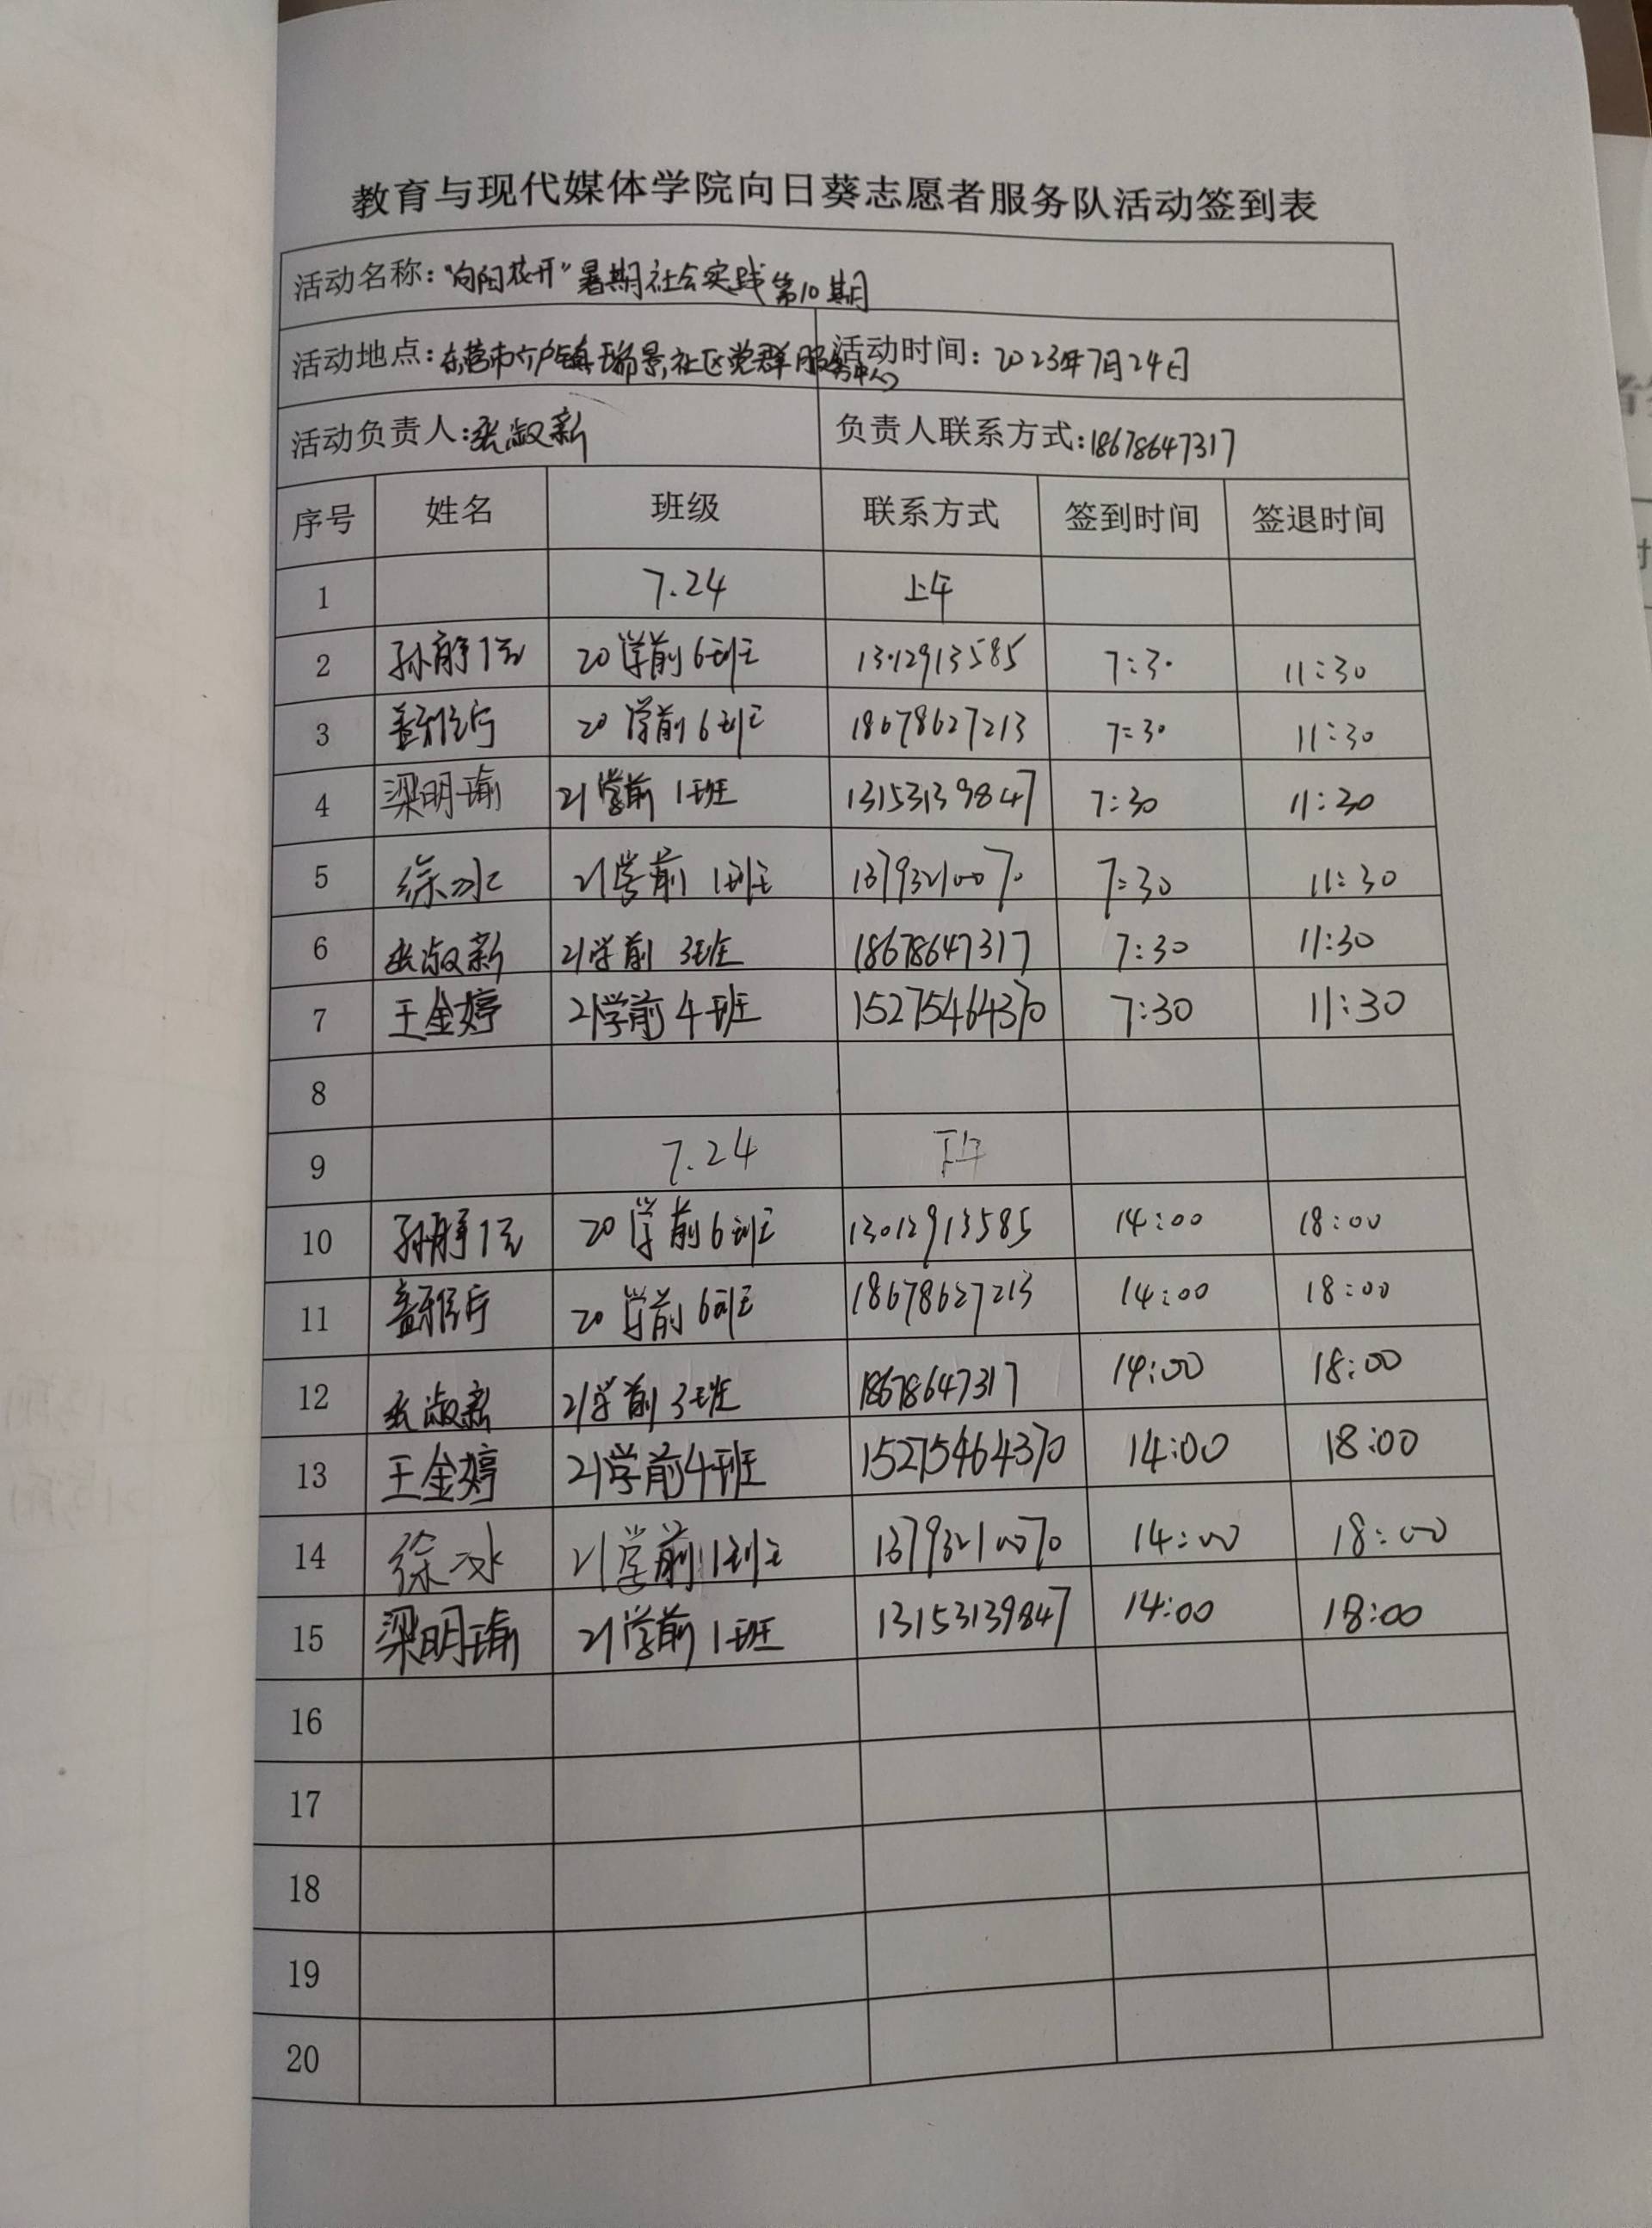 教育与现代媒体学院向日葵志愿者服务队活动签到表
活动名称：“向阳花开”暑期社会实践第10期
活动地点：东营市六户镇瑞景社区党群服务中心 活动时间：2023年7月24日
活动负责人：张淑新 负责人联系方式：18678647317
序号 姓名 班级 联系方式 签到时间 签退时间
1 7.24 上午
2 孙 20学前6班 13012913585 7:30 11:30
3 20学前6班 18678627213 7:30 11:30
4 梁明瑜 21学前1班 13153139847 7:30 11:30
5 徐冰 21学前1班 13793210070 7:30 11:30
6 张淑新 21学前3班 18678647317 7:30 11:30
7 王金婷 21学前4班 15275464370 7:30 11:30
8
9 7.24 下午
10 孙 20学前6班 13012913585 14:00 18:00
11 20学前6班 18678627213 14:00 18:00
12 张淑新 21学前3班 18678647317 14:00 18:00
13 王金婷 21学前4班 15275464370 14:00 18:00
14 徐冰 21学前1班 13793210070 14:00 18:00
15 梁明瑜 21学前1班 13153139847 14:00 18:00
16
17
18
19
20